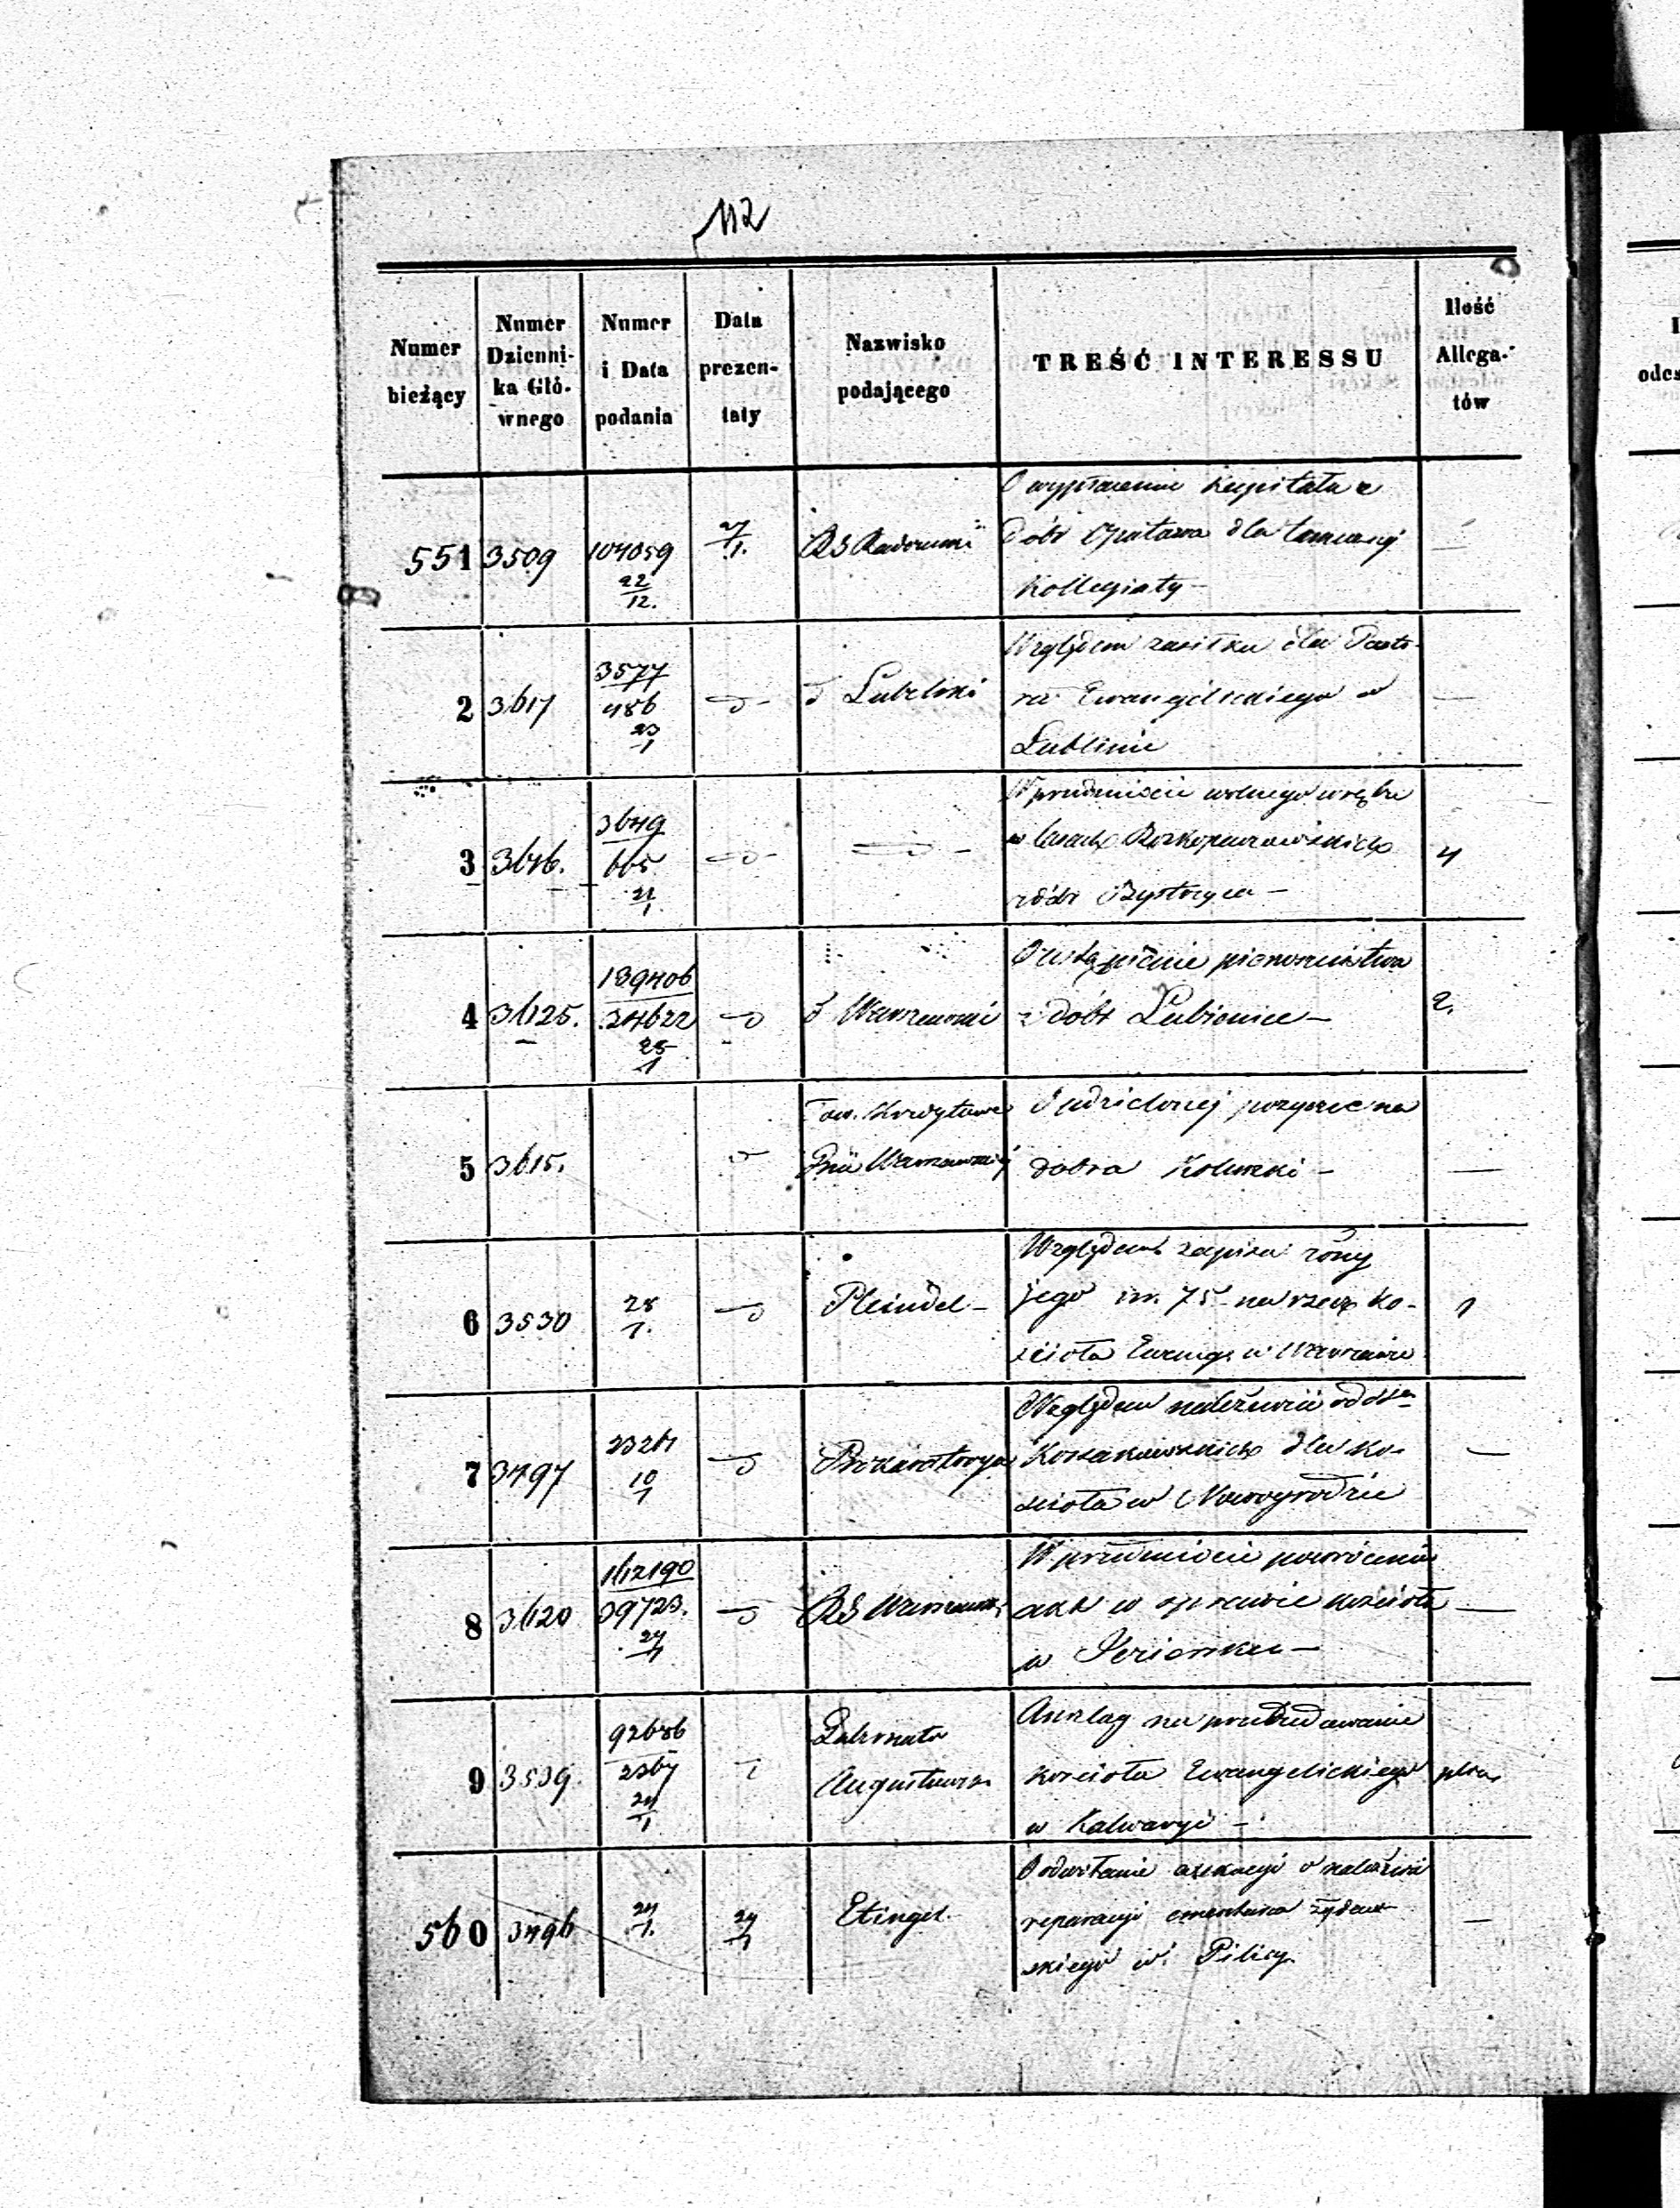 112
Numer bieżący
Numer Dzienni-ka Głó-wnego
Numer i Data podania
Data prezen-taty
Nazwisko podającego
TREŚĆ INTERESSU
Ilość Allega-tów
551 3509 104059 22/12. 27/1. RG Radomski
O wypłacenie Kapitału z
dóbr Opatowa dla tamecznej
Kollegiaty —
2 3617 3577/486 23/1 d Lubelski
Względem zasiłku dla Pasto-
ra Ewangelickiego w
Lublinie —
3 3646. 3649/665 21/1
W przedmiocie wolnego wrębu
w lasach
z dóbr Bystrzyca — 4
4 3625. 139406/34622 25/1 d Warszawski
O ustąpienie pierwszeństwa
z dóbr Lubienice — 2.
5 3615. Tow. Kredytowe
Warszawskiej
O udzielonej pożyczce na
dobra Koluszki —
6 3530 28/1. Pleindel —
Względem zapisu żony
jego rsr. 75 na rzecz Ko-
ścioła Ewang. w Warszawie 1
7 3497 10/1 Prokuratorya
Względem należności od dóbr
Kossakowskich dla Ko-
ścioła w Nowogrodzie —
8 3620 162190/39723. 24/1 RG Warszawski
W przedmiocie powrócenia
akt w sprawie kościoła
w Jeziorsku —
9 3539. 92686/2367 24/1 Gubernator
Augustowski
Anszlag na przebudowanie
kościoła Ewangelickiego
w Kalwaryi — plan
560 3496 24/1. 24/1 Etinger
O odwołanie
reparacyi cmentarza żydow-
skiego w Pilicy.